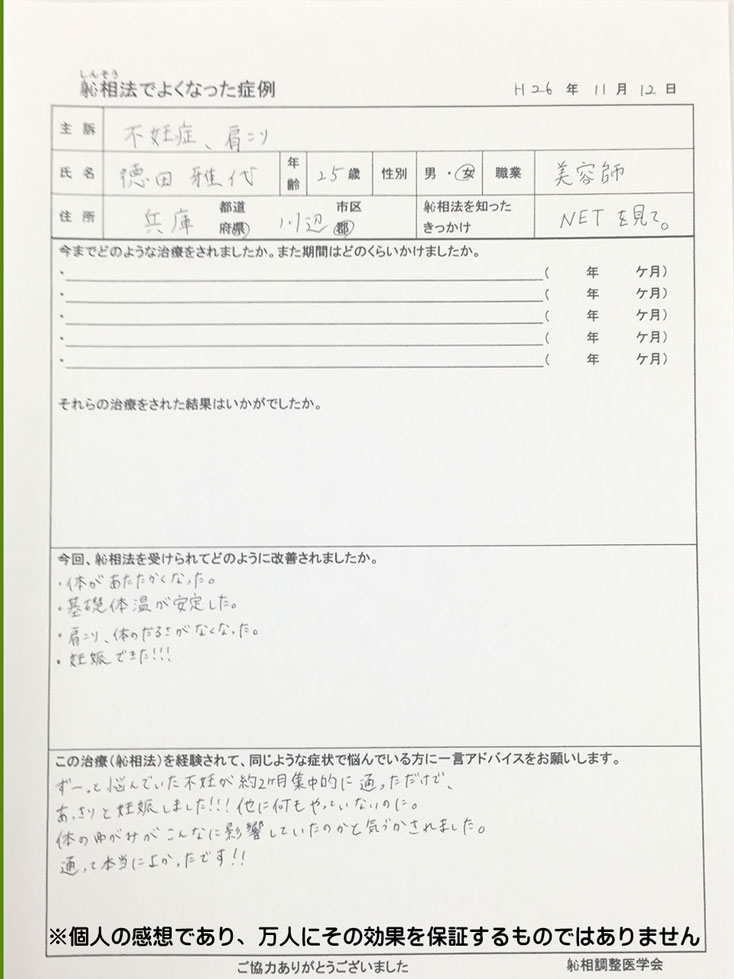 しんそう
䑺相法でよくなった症例 H26年 11月 12日
主訴 不妊症、肩こり
氏名 徳田 雅代 年齢 25歳 性別 男・女 職業 美容師
住所 兵庫 都道府県 川辺 市区郡 䑺相法を知ったきっかけ NETを見て。
今までどのような治療をされましたか。また期間はどのくらいかけましたか。
・ ( 年 ケ月)
・ ( 年 ケ月)
・ ( 年 ケ月)
・ ( 年 ケ月)
・ ( 年 ケ月)
それらの治療をされた結果はいかがでしたか。
今回、䑺相法を受けられてどのように改善されましたか。
・体があたたかくなった。
・基礎体温が安定した。
・肩こり、体のだるさがなくなった。
・妊娠できた!!!
この治療(䑺相法)を経験されて、同じような症状で悩んでいる方に一言アドバイスをお願いします。
ずーっと悩んでいた不妊が約2ヶ月集中的に通っただけで、
あっさりと妊娠しました!!!他に何もやっていないのに。
体のゆがみがこんなに影響していたのかと気づかされました。
通って本当によかったです!!
※個人の感想であり、万人にその効果を保証するものではありません
ご協力ありがとうございました
䑺相調整医学会